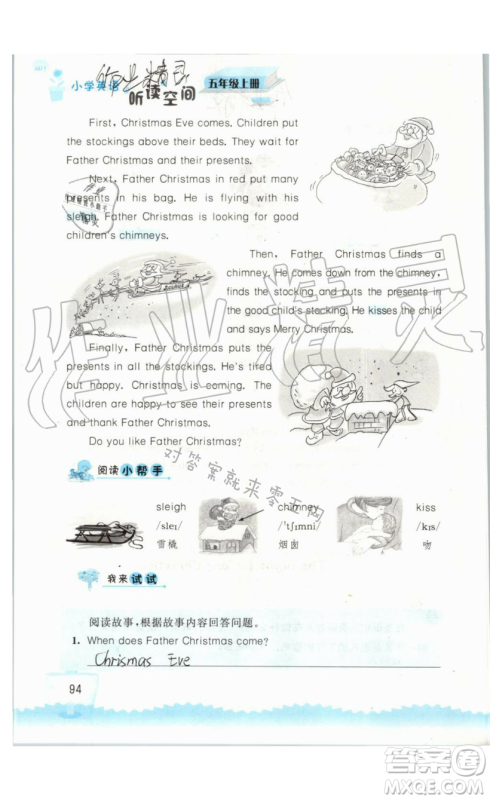 作业精灵
小学英语
听读空间
五年级上册
First, Christmas Eve comes. Children put
the stockings above their beds. They wait for
Father Christmas and their presents.
Next, Father Christmas in red put many
presents in his bag. He is flying with his
sleigh. Father Christmas is looking for good
children's chimneys.
Then, Father Christmas finds a
chimney. He comes down from the chimney,
finds the stocking and puts the presents in
the good child's stocking. He kisses the child
and says Merry Christmas.
Finally, Father Christmas puts the
presents in all the stockings. He's tired
but happy. Christmas is coming. The
children are happy to see their presents
and thank Father Christmas.
Do you like Father Christmas?
作业精灵
对答案就来零五网
阅读小帮手
sleigh
/sleɪ/
雪橇
chimney
/'tʃɪmni/
烟囱
kiss
/kɪs/
吻
我来试试
阅读故事，根据故事内容回答问题。
1. When does Father Christmas come?
Chrismas Eve
94
答案圈
MXQE.COM